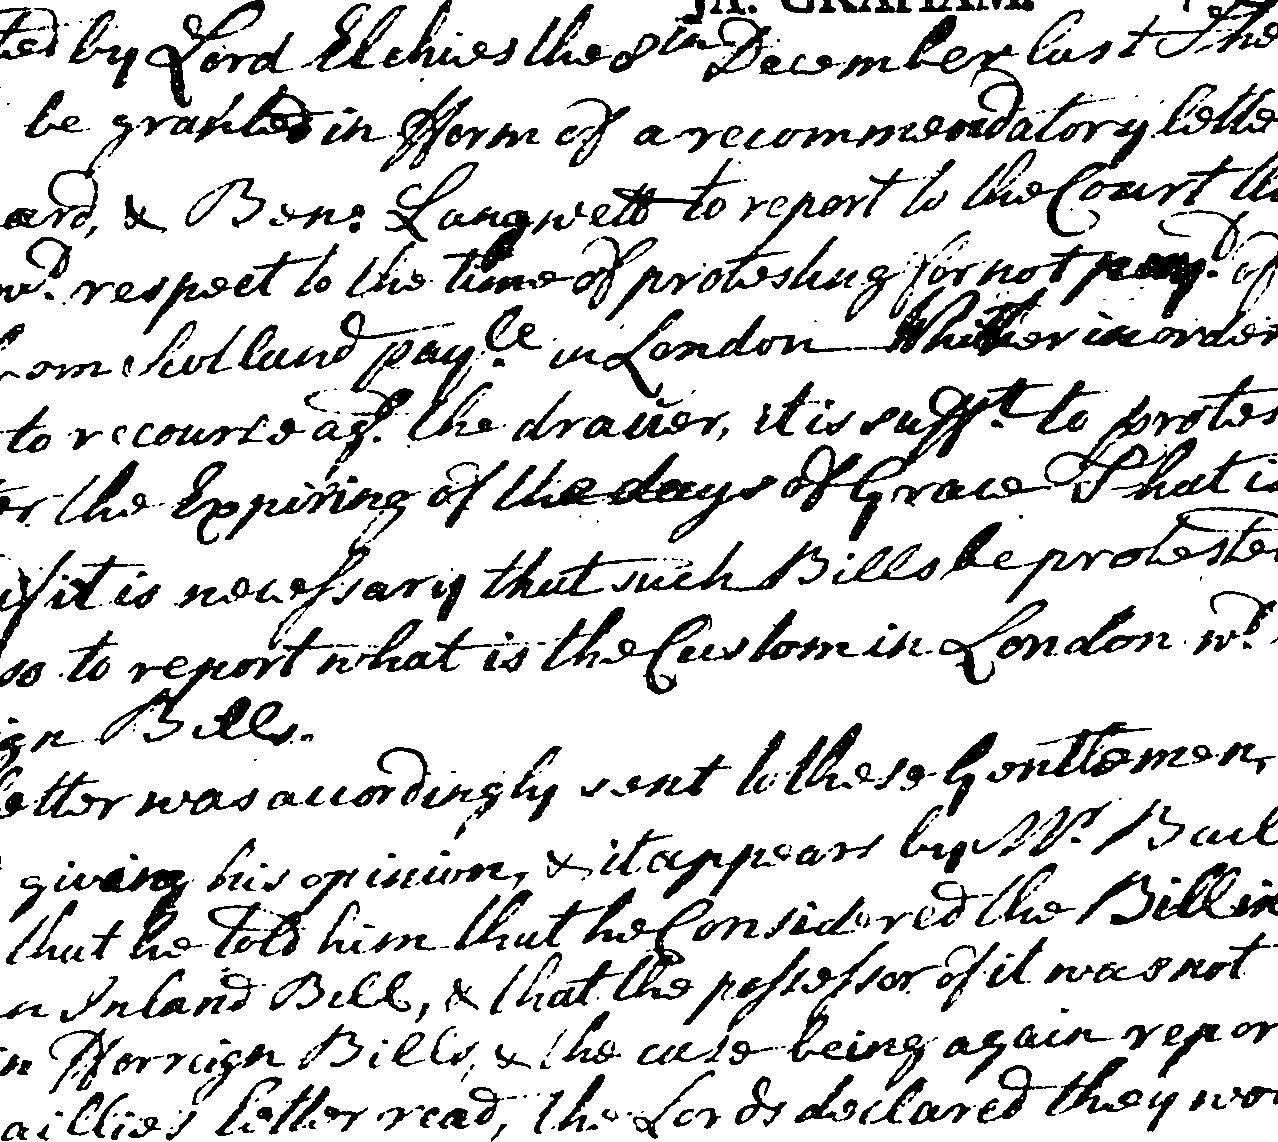 JA: GRAHAM.
ted by Lord Elchies the 8th December last The
be granted in fform of a recommendatory lette
ard, & Ben: Langwett to report to the Court th
wd. respect to the time of protesting for not payt. of
from Scotland pay.le in London Whither in order
to recourse agt. the drauer, it is suffit. to protes
er the Expiring of the days of Grace That is
if it is necessary that such Bills be protested
so to report what is the Custom in London wt.
ign Bills.
letter was accordingly sent to these Gentlemen,
giving his opinion, & it appears by Mr. Bail
that he told him that he Considered the Bill in
n Inland Bill, & that the possessor of it was not
in fforreign Bills, & the case being again repor
aillies letter read, the Lords declared they wou